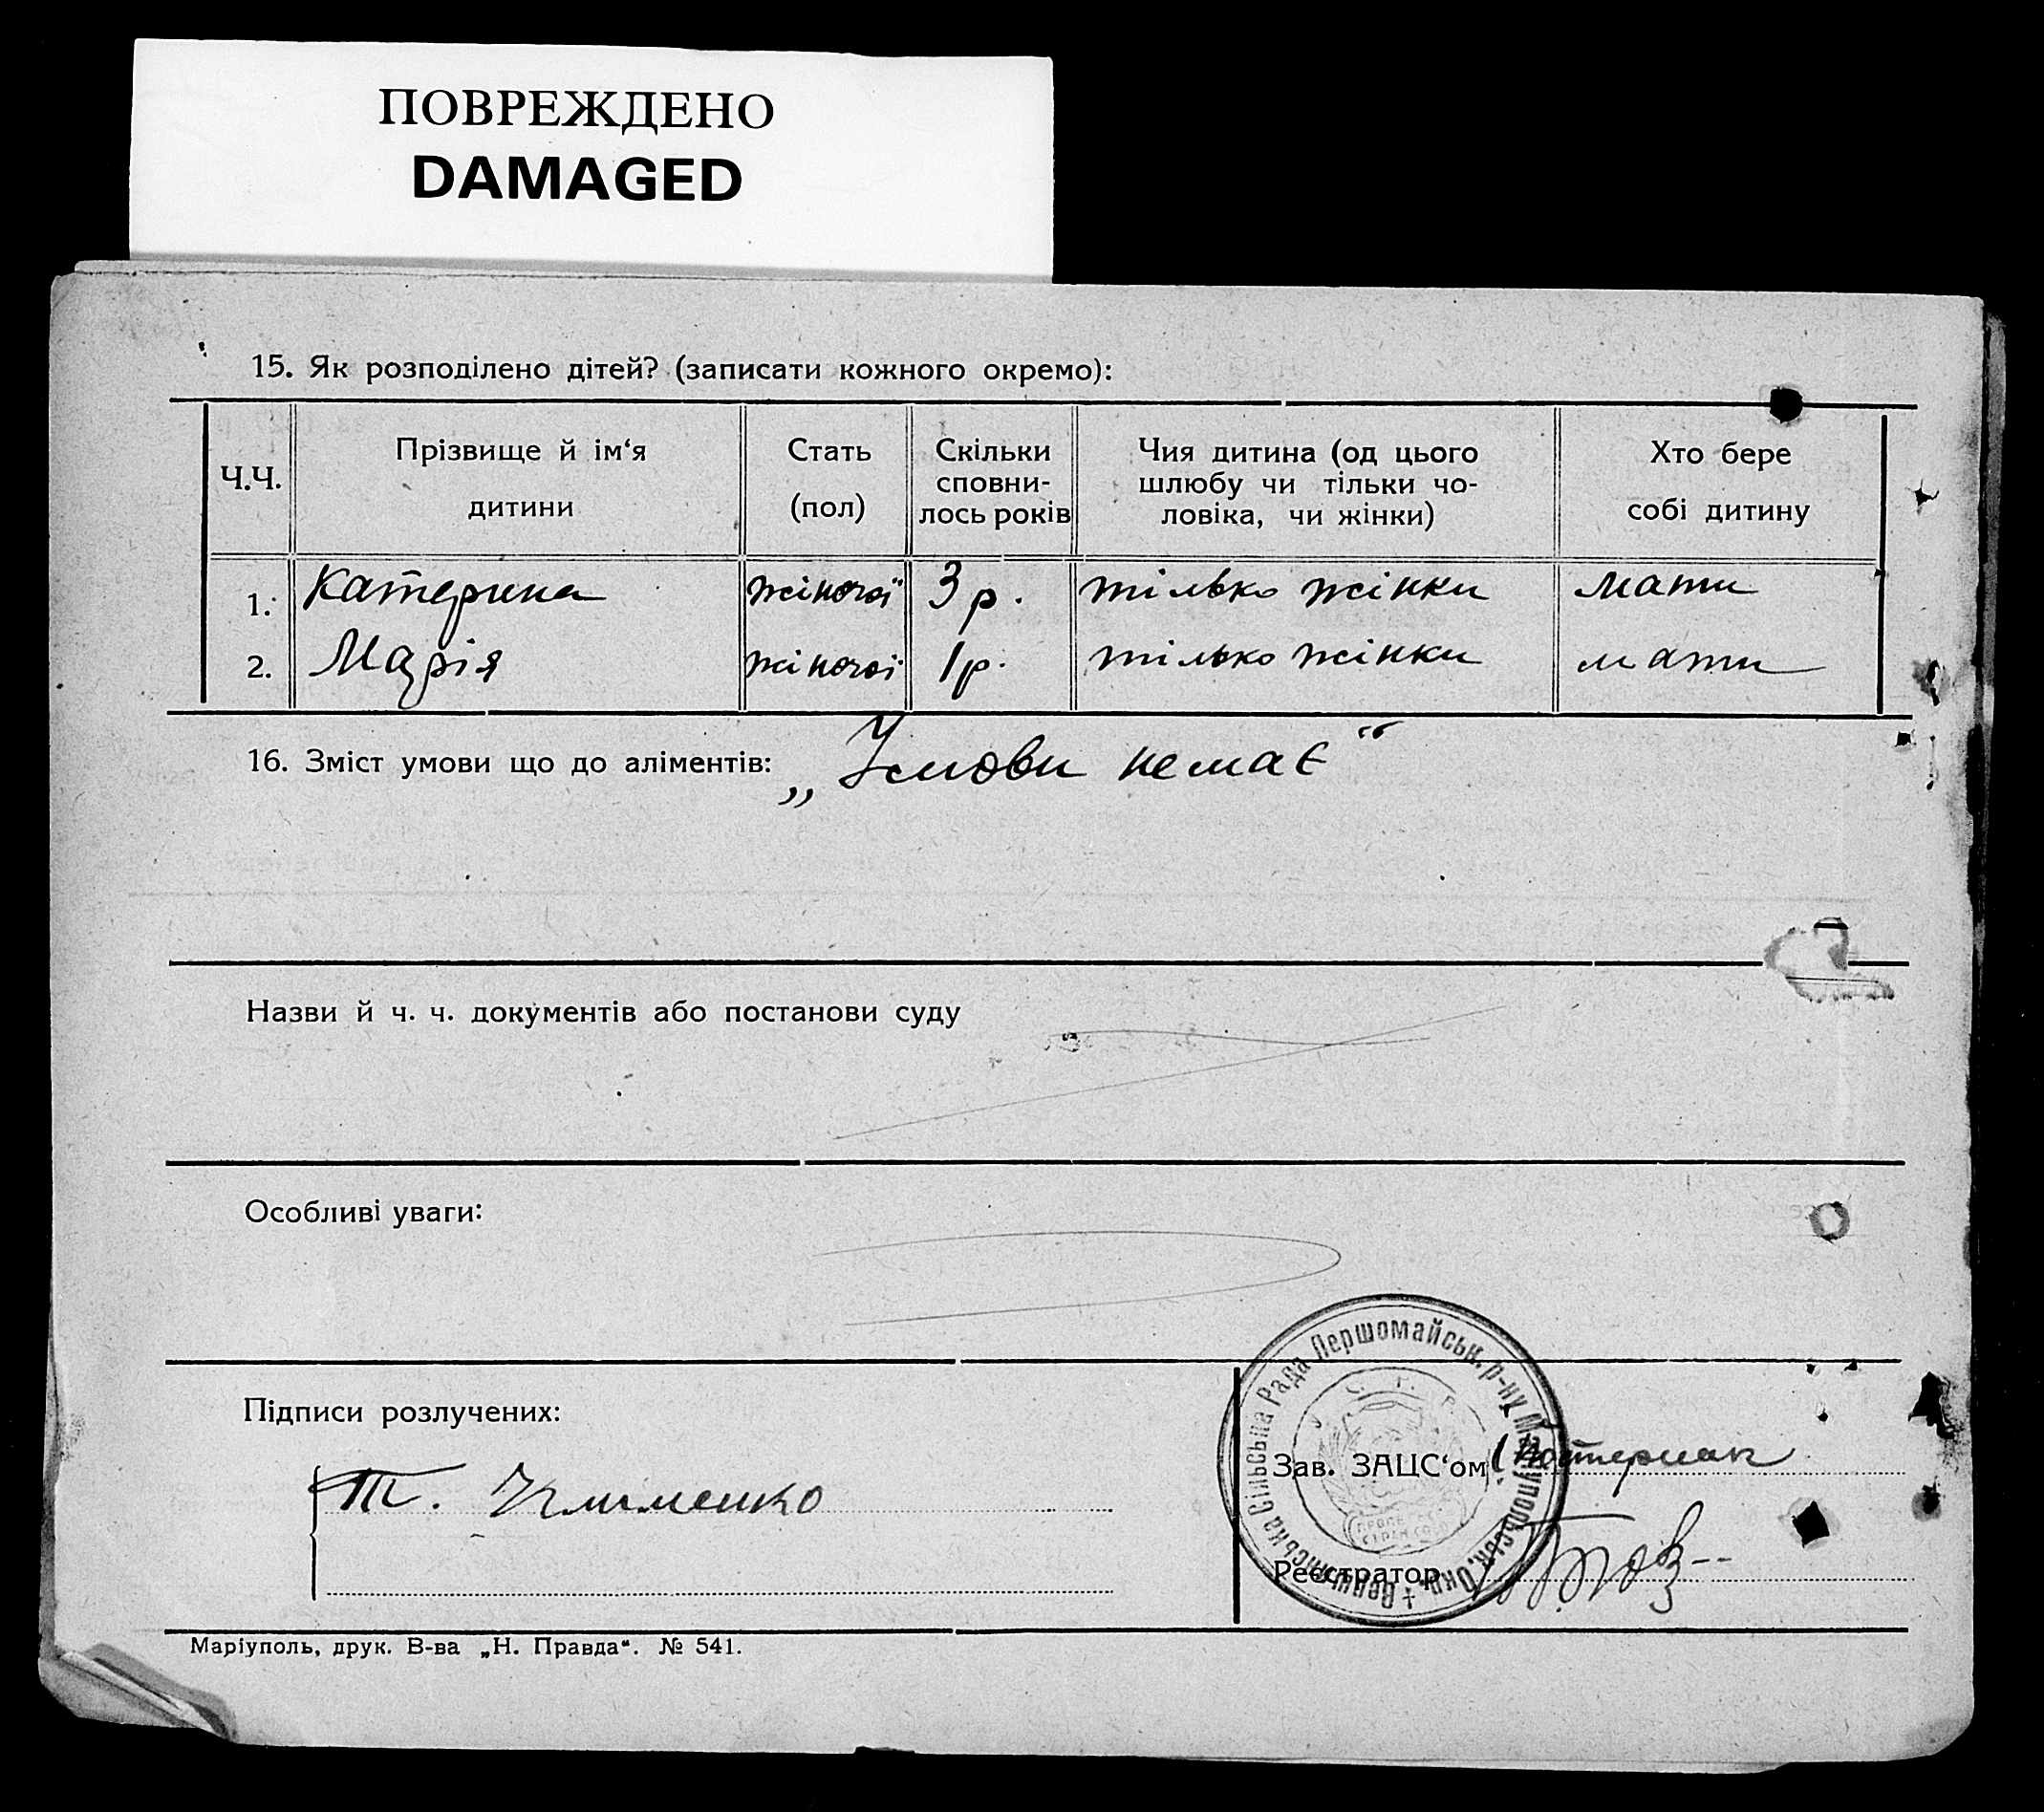 ПОВРЕЖДЕНО
DAMAGED
15. Як розподілено дітей? (записати кожного окремо):
Ч.Ч.
Прізвище й ім‘я
дитини
Стать
(пол)
Скільки
сповни-
лось років
Чия дитина (од цього
шлюбу чи тільки чо-
ловіка, чи жінки)
Хто бере
собі дитину
1. Катерина жіночої 3 р. тілько жінки мати
2. Марія жіночої 1 р. тілько жінки мати
16. Зміст умови що до аліментів: „Умови немає“
Назви й ч. ч. документів або постанови суду
Особливі уваги:
Підписи розлучених:
Т. Клименко
Зав. ЗАЦС‘ом
Реєстратор
Сільська Рада Першомайськ. р-ну Маріупольськ. Окр.
Маріуполь, друк. В-ва „Н. Правда“. № 541.